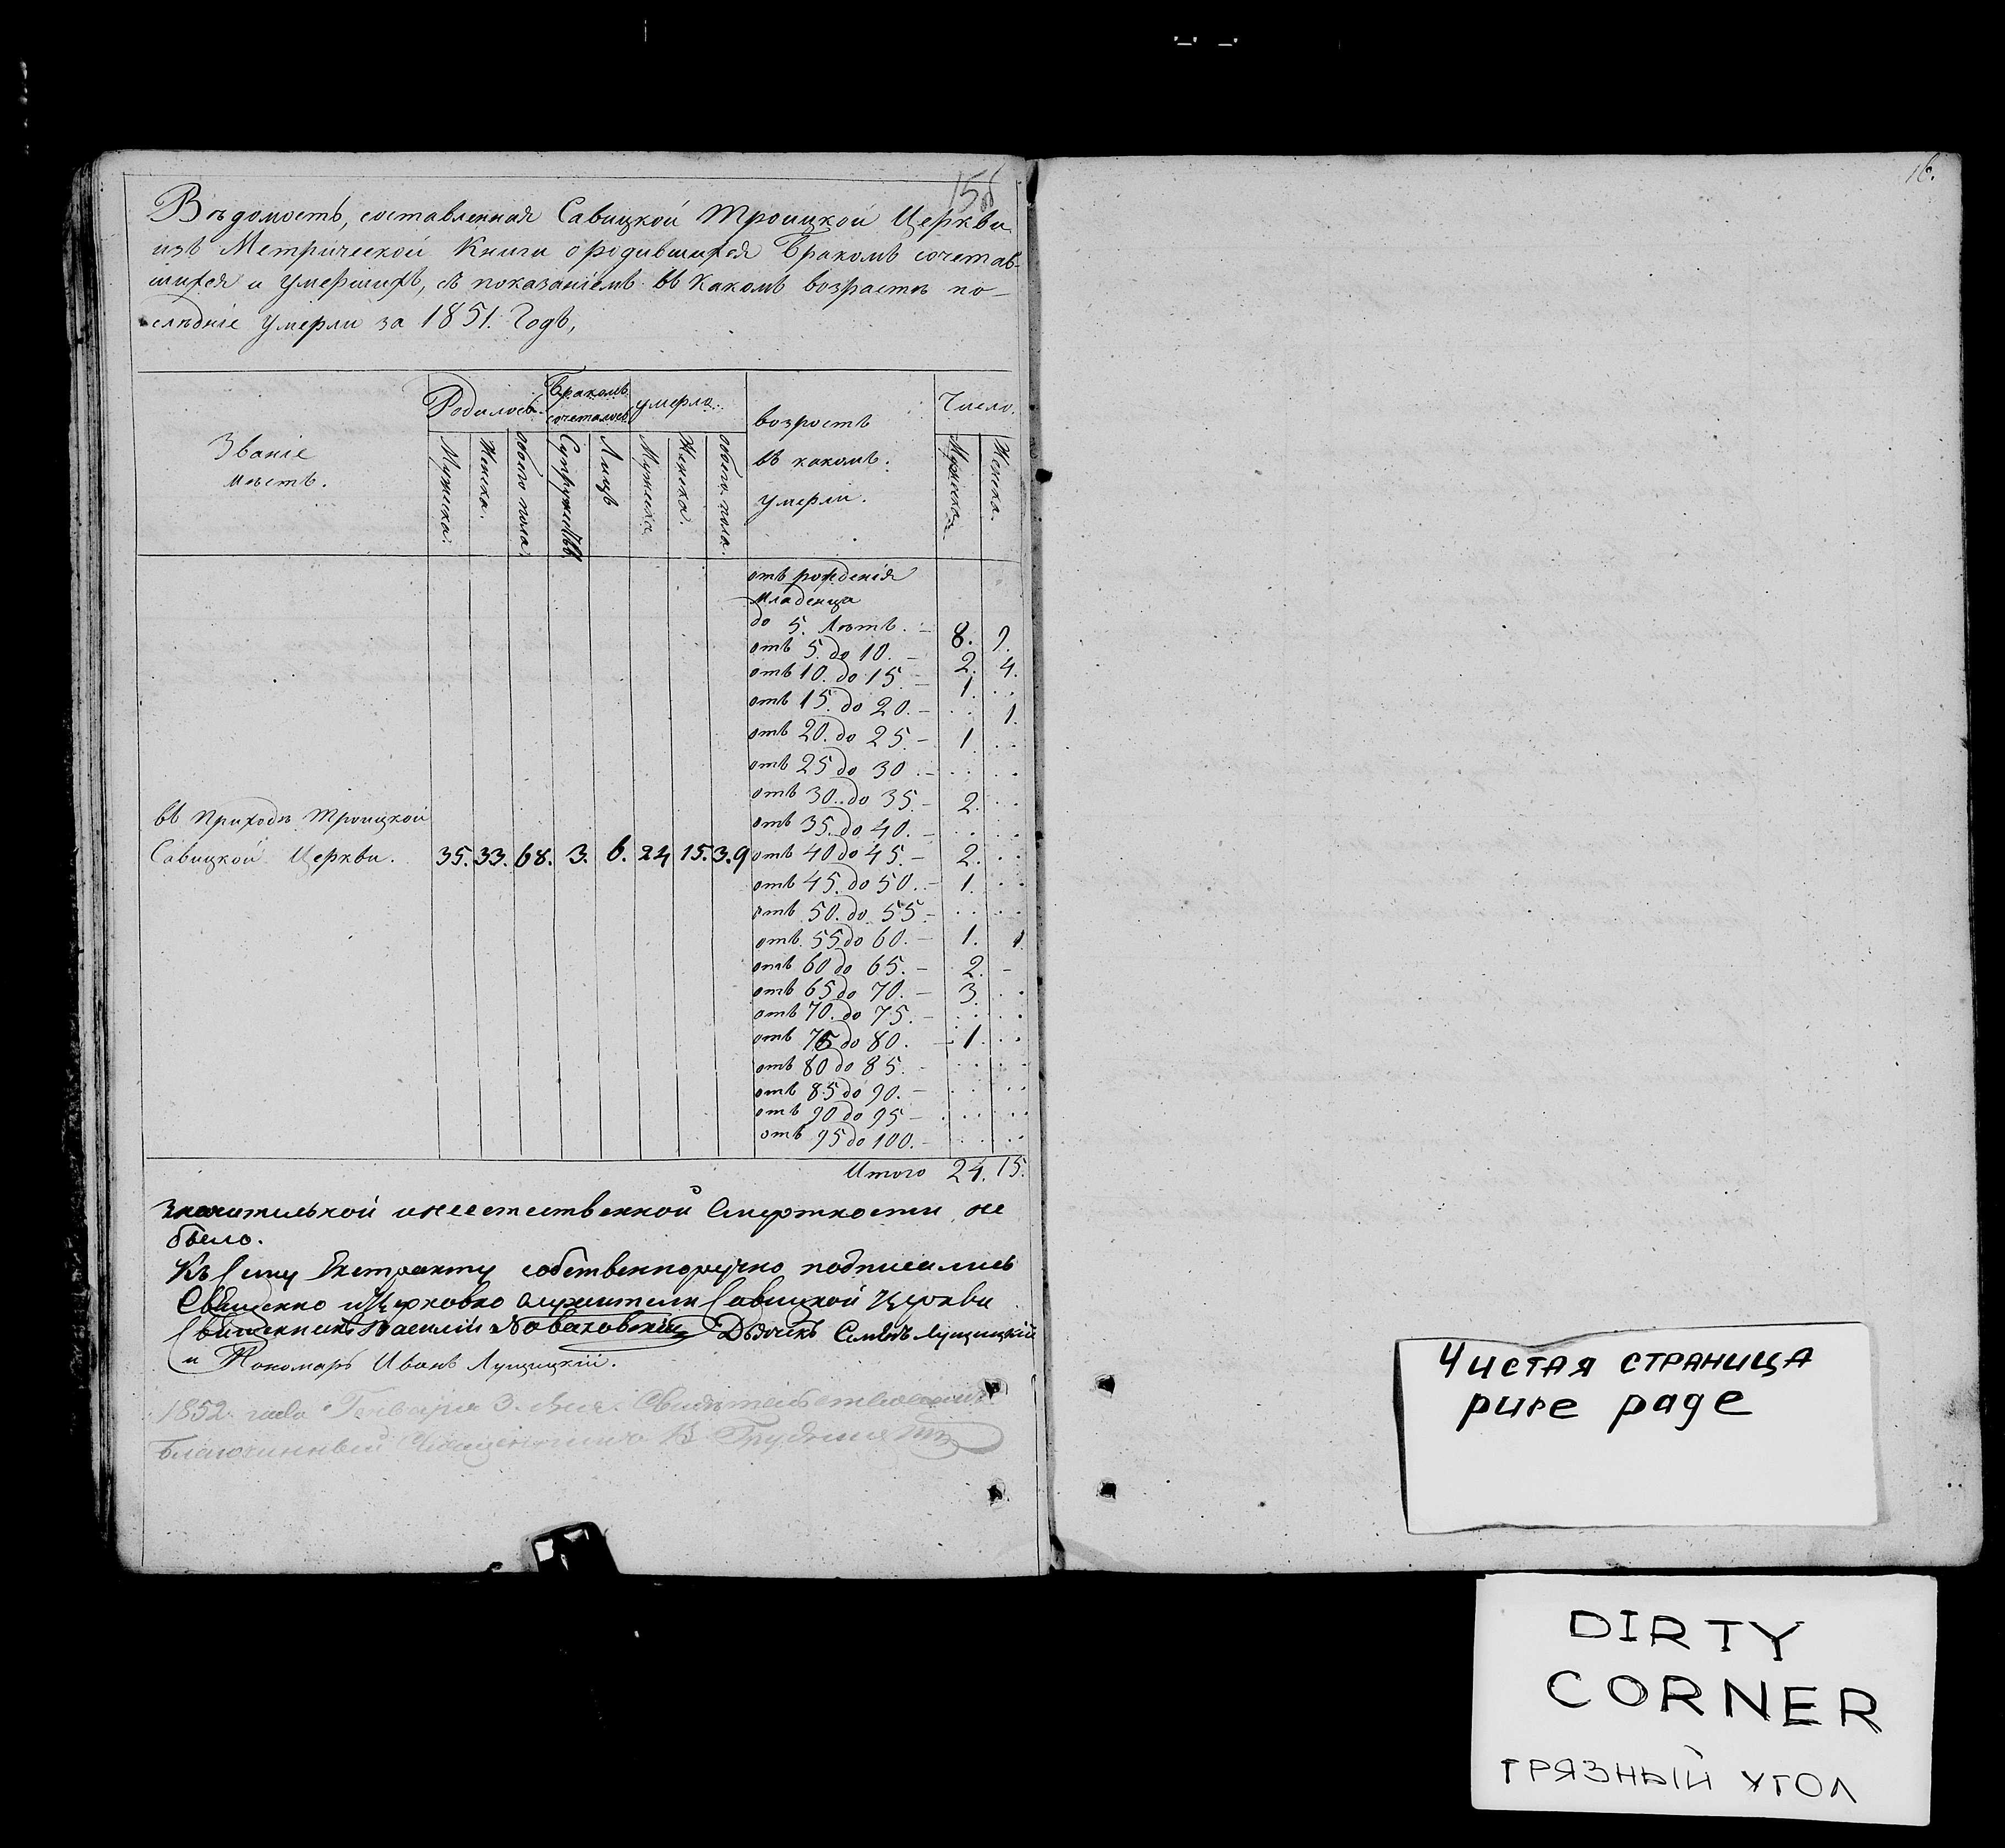 15б
Вѣдомость, составленная Савицкой Троицкой Церкви
изъ Метрической Книги о родившихся Бракомъ сочетав-
шихся и умершихъ, съ показаніемъ въ Какомъ возрастѣ по-
слѣдніе умерли за 1851. Годъ,
Званіе мѣстъ.
Родилось.
Бракомъ сочеталось
умерло.
возростъ въ какомъ. умерли.
Число.
Мужеска. Женска. обоего пола. Супружествъ Лицъ Мужеска Женска. обоего пола. Мужеска Женска.
отъ рожденія
Младенца
до 5. Лѣтъ. – 8. 9.
отъ 5. до 10. – 2. 4.
отъ 10. до 15 – 1. . .
отъ 15. до 20. – . . 1.
отъ 20. до 25 – 1. . .
отъ 25 до 30 . – . . . .
отъ 30. до 35. – 2. . .
отъ 35. до 40. – . . . .
въ Приходѣ Троицкой
Савицкой Церкви. 35. 33. 68. 3. 6. 24 15. 39 отъ 40 до 45. – 2. . .
отъ 45. до 50. – 1. . .
отъ 50. до 55 – . . . .
отъ 55 до 60. – 1. 1.
отъ 60 до 65. – 2. –
отъ 65 до 70. – 3. . .
отъ 70. до 75. – . . . .
отъ 75 до 80. – 1. . .
отъ 80 до 85. – . . . .
отъ 85 до 90. – . . . .
отъ 90 до 95 – . . . .
отъ 95 до 100. – . . . .
Итого 24. 15.
Значительной и неестественной Смертности не
было.
Къ Сему Екстракту собственноручно подписались
Священно и Церковно служители Савицкой Церкви
Священникъ Василій Новаковскій Дьячекъ Семенъ Лущицкій
и Пономарь Иванъ Лущицкій.
1852 года Генваря 3. дня. Свидѣтельствовалъ
Благочинный Священникъ В.
16.
Чистая страница
pure page
DIRTY
CORNER
ГРЯЗНЫЙ УГОЛ